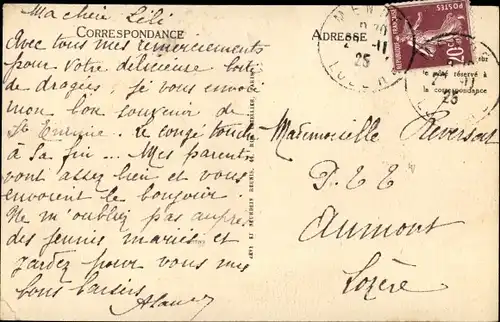 Ma chère Lili
CORRESPONDANCE
Avec tous mes remerciements
pour votre délicieuse boîte
de dragées, je vous envoie
mon bon souvenir de
Ste Enimie. Le congé touche
à sa fin... Mes parents
vont assez bien et vous
envoient le bonjour
Ne m'oubliez pas auprès
des jeunes mariés et
gardez pour vous mes
bons baisers
ADRESSE
MENDE
2 -11
25
LOZERE
POSTES
REPUBLIQUE FRANÇAISE
20c
2 -11
25
le côté réservé à
la correspondance
Mademoiselle Reversat
P.T.T
Aumont
Lozère